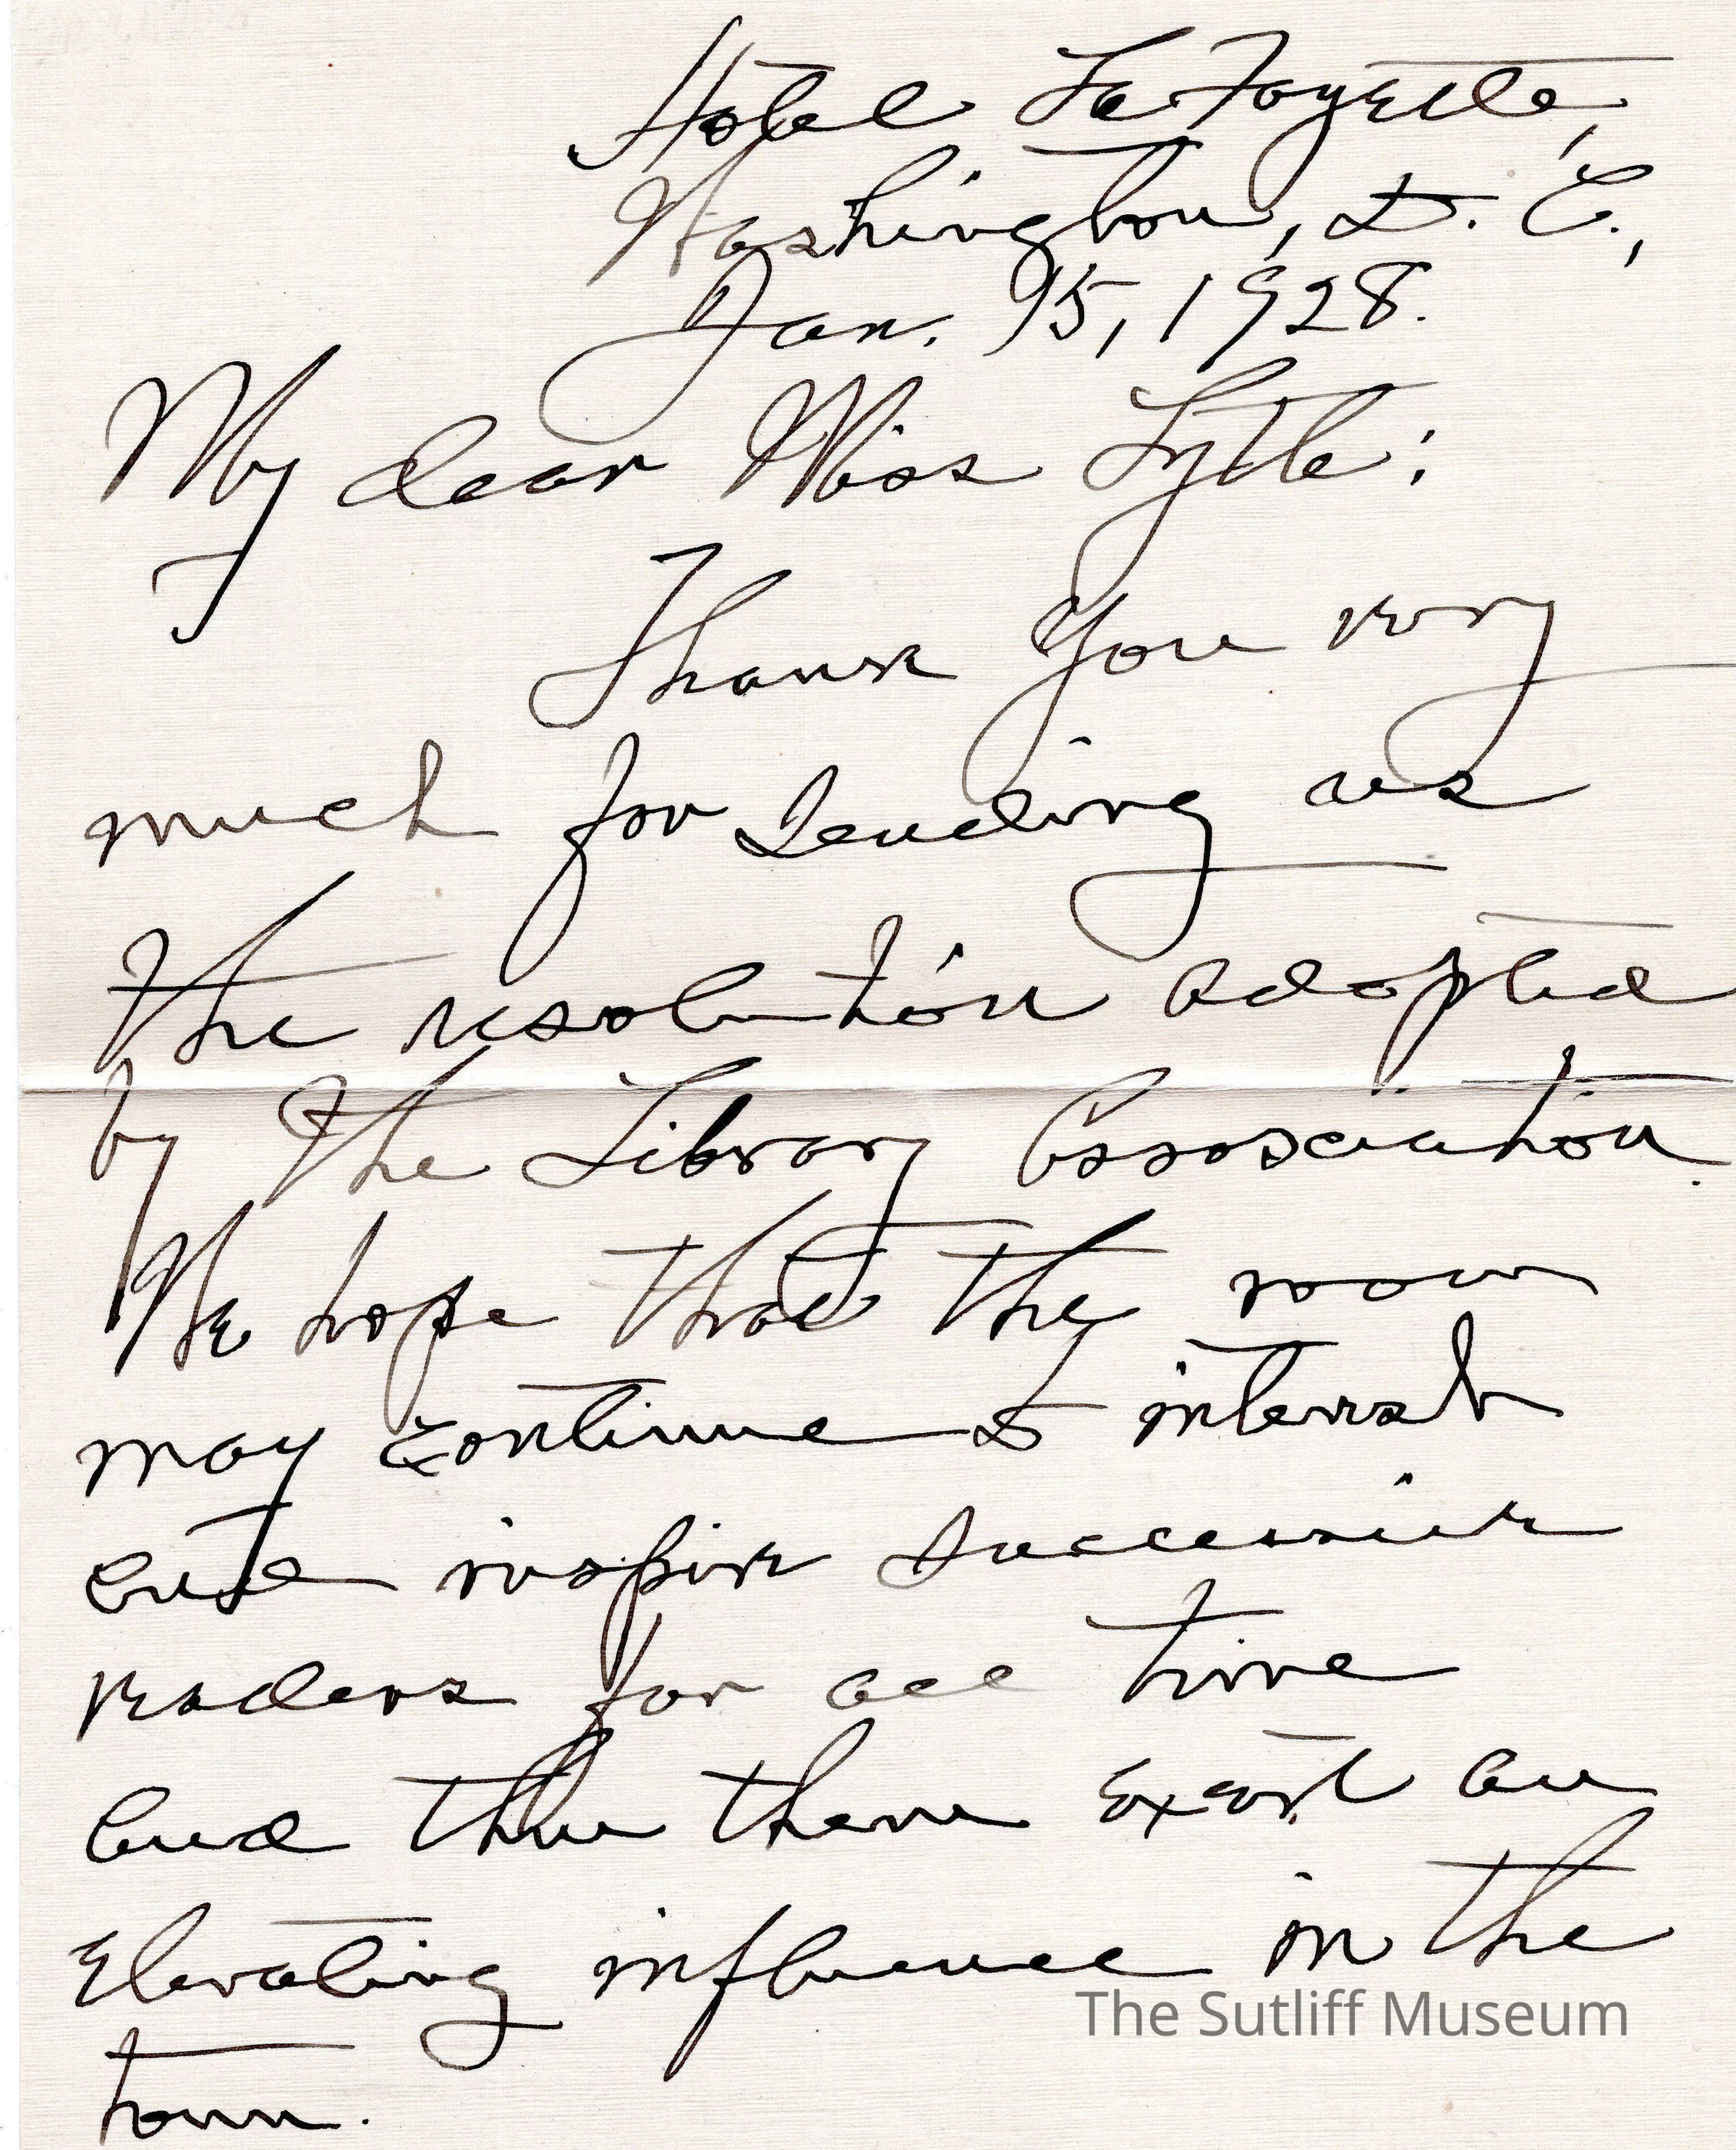 Hotel La Fayette,
Washington, D. C.,
Jan. 15, 1928.
My dear Miss Lytle:
Thank you very
much for sending us
the resolution adopted
by the Library Association.
We hope that the room
may continue to interest
and inspire successive
readers for all time
and thus there exist an
elevating influence in the
town.
The Sutliff Museum